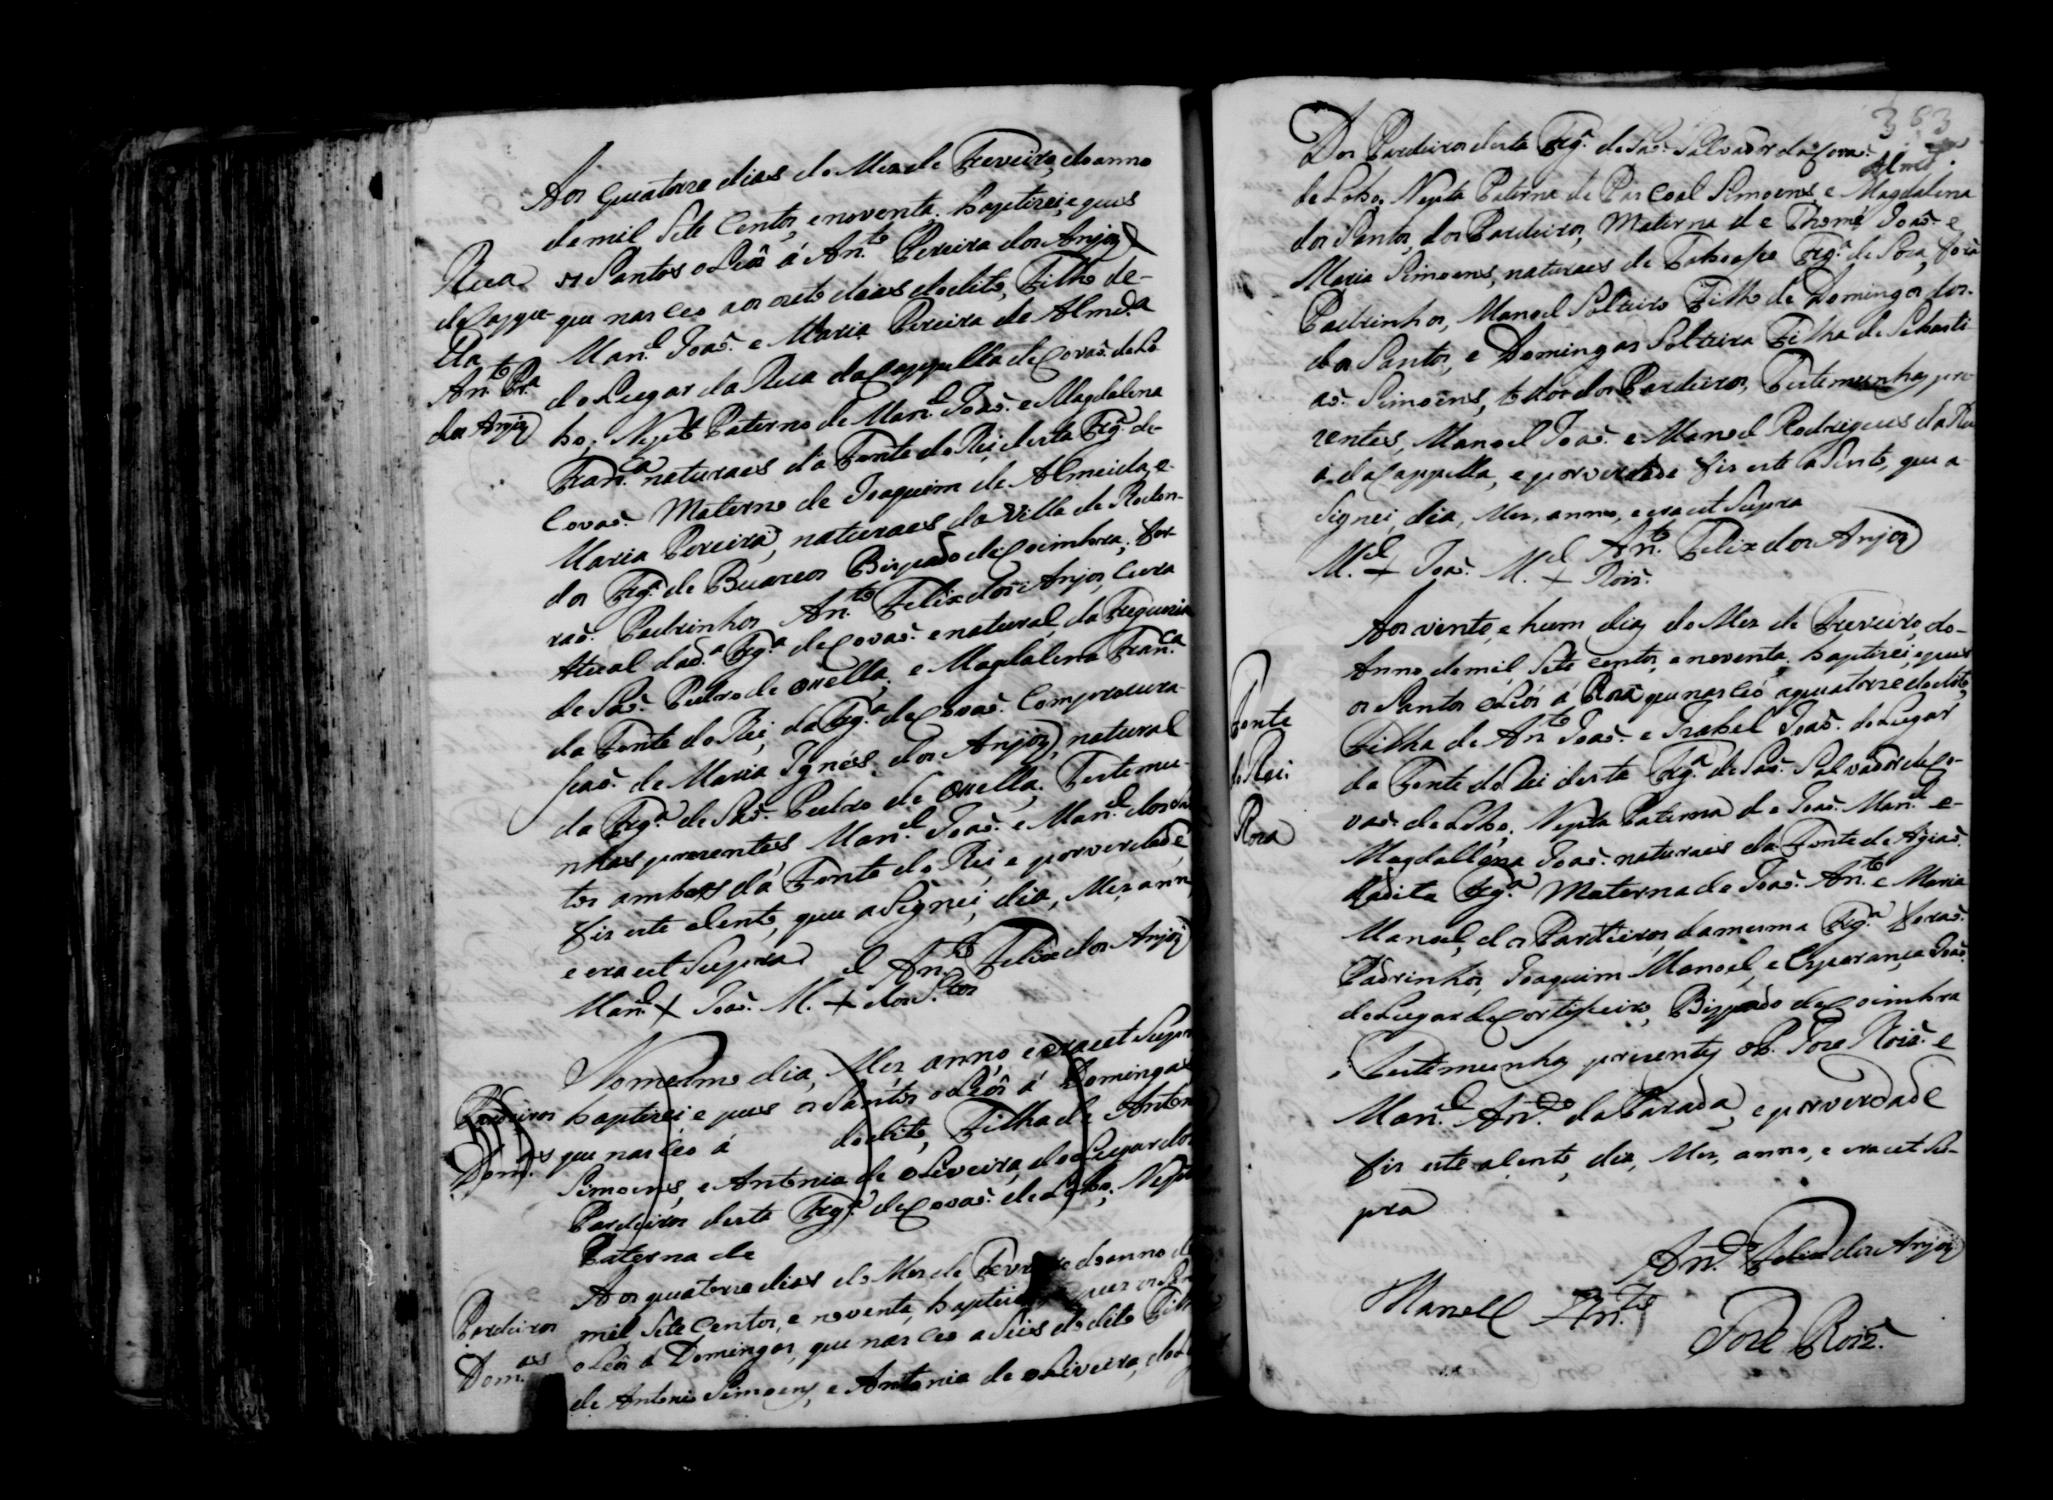 Aos quatorze dias do Mez de Fevreiro, do anno
de mil Sete Centos, e noventa, baptizei, e pus
os Santos oLeos á An.to Pereira dos Anjos
que nasceo aos oito dias do dito, Filho de
Man.el Joaõ. e Maria Pereira de Almd.a
do Lugar da Rua da Cappella de Covas. de Lo
bo, Nepto Paterno de Man.el Joaõ. e Magdalena
Fran.ca naturaes da Fonte do Rei, desta Frg.a de
Covas. Materno de Joaquim de Almeida, e
Maria Pereira, naturaes da Villa de Redon
dos Frg.a de Buarcos Bispado de Coimbra, fo
raõ. Padrinhos An.to Felix dos Anjos, Cura
Atual da d.a Frg.a de Covas. e natural da Freguezia
de Saõ. Pedro de Orella, e Magdalena Fran.ca
da Fonte do Rei, da Frg.a de Covas. Com procura
saõ. de Maria Ignes dos Anjos, natural
da Frg.a de Saõ. Pedro de Orella, Testemu
nhas prezentes Man.el Joaõ. e Man.el dos San
tos ambos da Fonte do Rei, e por verdade,
fis este asento, que aSignei, dia, Mez, ann
e era ut Supra
An.to Felix dos Anjos
Man.el + Joaõ. M.el + dos S.tos
Rua
da Cappe
lla
An.to Pr.a
dos Anjos
No mesmo dia, Mez, anno, e era ut Supra
baptizei, e pus os Santos oLeos á Domingas
que nasceo á do dito, Filha de Anton
Simoens, e Antonia de oLiveira, do Lugar dos
Pardieiros desta Frg.a de Covas. de Lobo, Nepta
Paterna de
Pardieiros
Dom.as
Aos quatorze dias do Mez de Fevreiro do anno de
mil Sete Centos, e noventa, baptizei e pus os San
oLeos á Domingas, que nasceo a Seis do dito Filh
de Antonio Simoens, e Antonia de oLiveira, do L
Pardieiros
Dom.as
383
Dos Pardieiros desta Frg.a de Saõ. Salvador da Covas.
de Lobo, Nepta Paterna de Pascoal Simoens e Magdalena
dos Santos, dos Pardeiros, Materna de Thomé Joaõ. e
Maria Simoens, naturaes de Frg.a de foraõ
Padrinhos, Manoel Solteiro Filho de Domingos dos
dos Santos, e Domingas Solteira Filha de Sebasti
aõ. Simoens, todos dos Pardeiros, Testemunhas pre
zentes, Manoel Joaõ. e Manoel Rodrigues da Ru
a da Cappella, e por verdade fis este aSento, que a
Signei, dia, Mez, anno, e era ut Supra
An.to Felix dos Anjos
M.el + Joaõ. M.el + Roiz.
Aos vente, e hum dias do Mez de Fevreiro, do
Anno de mil, Sete centos, e noventa, baptizei, e pus
os Santos oLeos á Roza que nasceo, a quatorze do dito,
Filha de An.to Joaõ. e Izabel Joaõ. do Lugar
da Fonte do Rei desta Frg.a de Saõ. Salvador de Co
vas. de Lobo, Nepta Paterna de Joaõ. Man.el e
Magdallena Joaõ. naturaes da Fonte de
da dita Frg.a Materna de Joaõ. An.to e Maria
Manoel, dos Pardieiros, da mesma Frg.a foraõ.
Padrinhos, Joaquim Manoel, e Esperança Joaõ.
do Lugar de Bispado de Coimbra
Testemunhas prezentes oP. Joze Roiz. e
Man.el An.to da Parada, e por verdade
fis este asento, dia, Mez, anno, e era ut Su
pra
An.to Felix dos Anjos
Manoell An.to
Joze Roiz.
Fonte
do Rei.
Roza